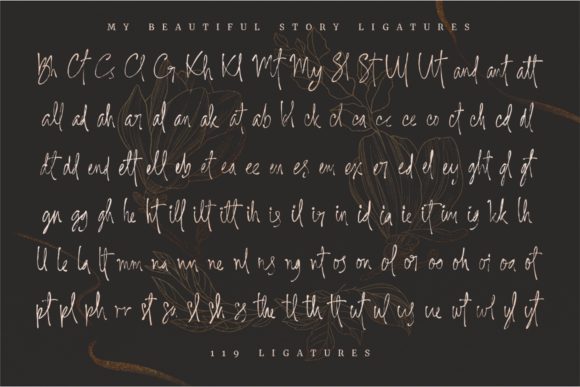 MY BEAUTIFUL STORY LIGATURES
Bh Ct Cs Cl Cr Kh Kl Mt My Sl St Ul Ut and ant att
all ad ah ar al an ak at ab bl ck ct ca ce co ct ch cd dl
dt dd end ett ell eb et ea ez en es em ex er ed el ey ght gl gt
gn gg gh he ht ill ilt itt ih is il ir in id ia ie it im ig kk lh
ll le la lt mm na nn ne nl ns ng nt os on ol or oo oh or oa ot
pt pl ph rr st ss sl sh ss the tl th tt ut ul us ue wt wl yl yt
119 LIGATURES